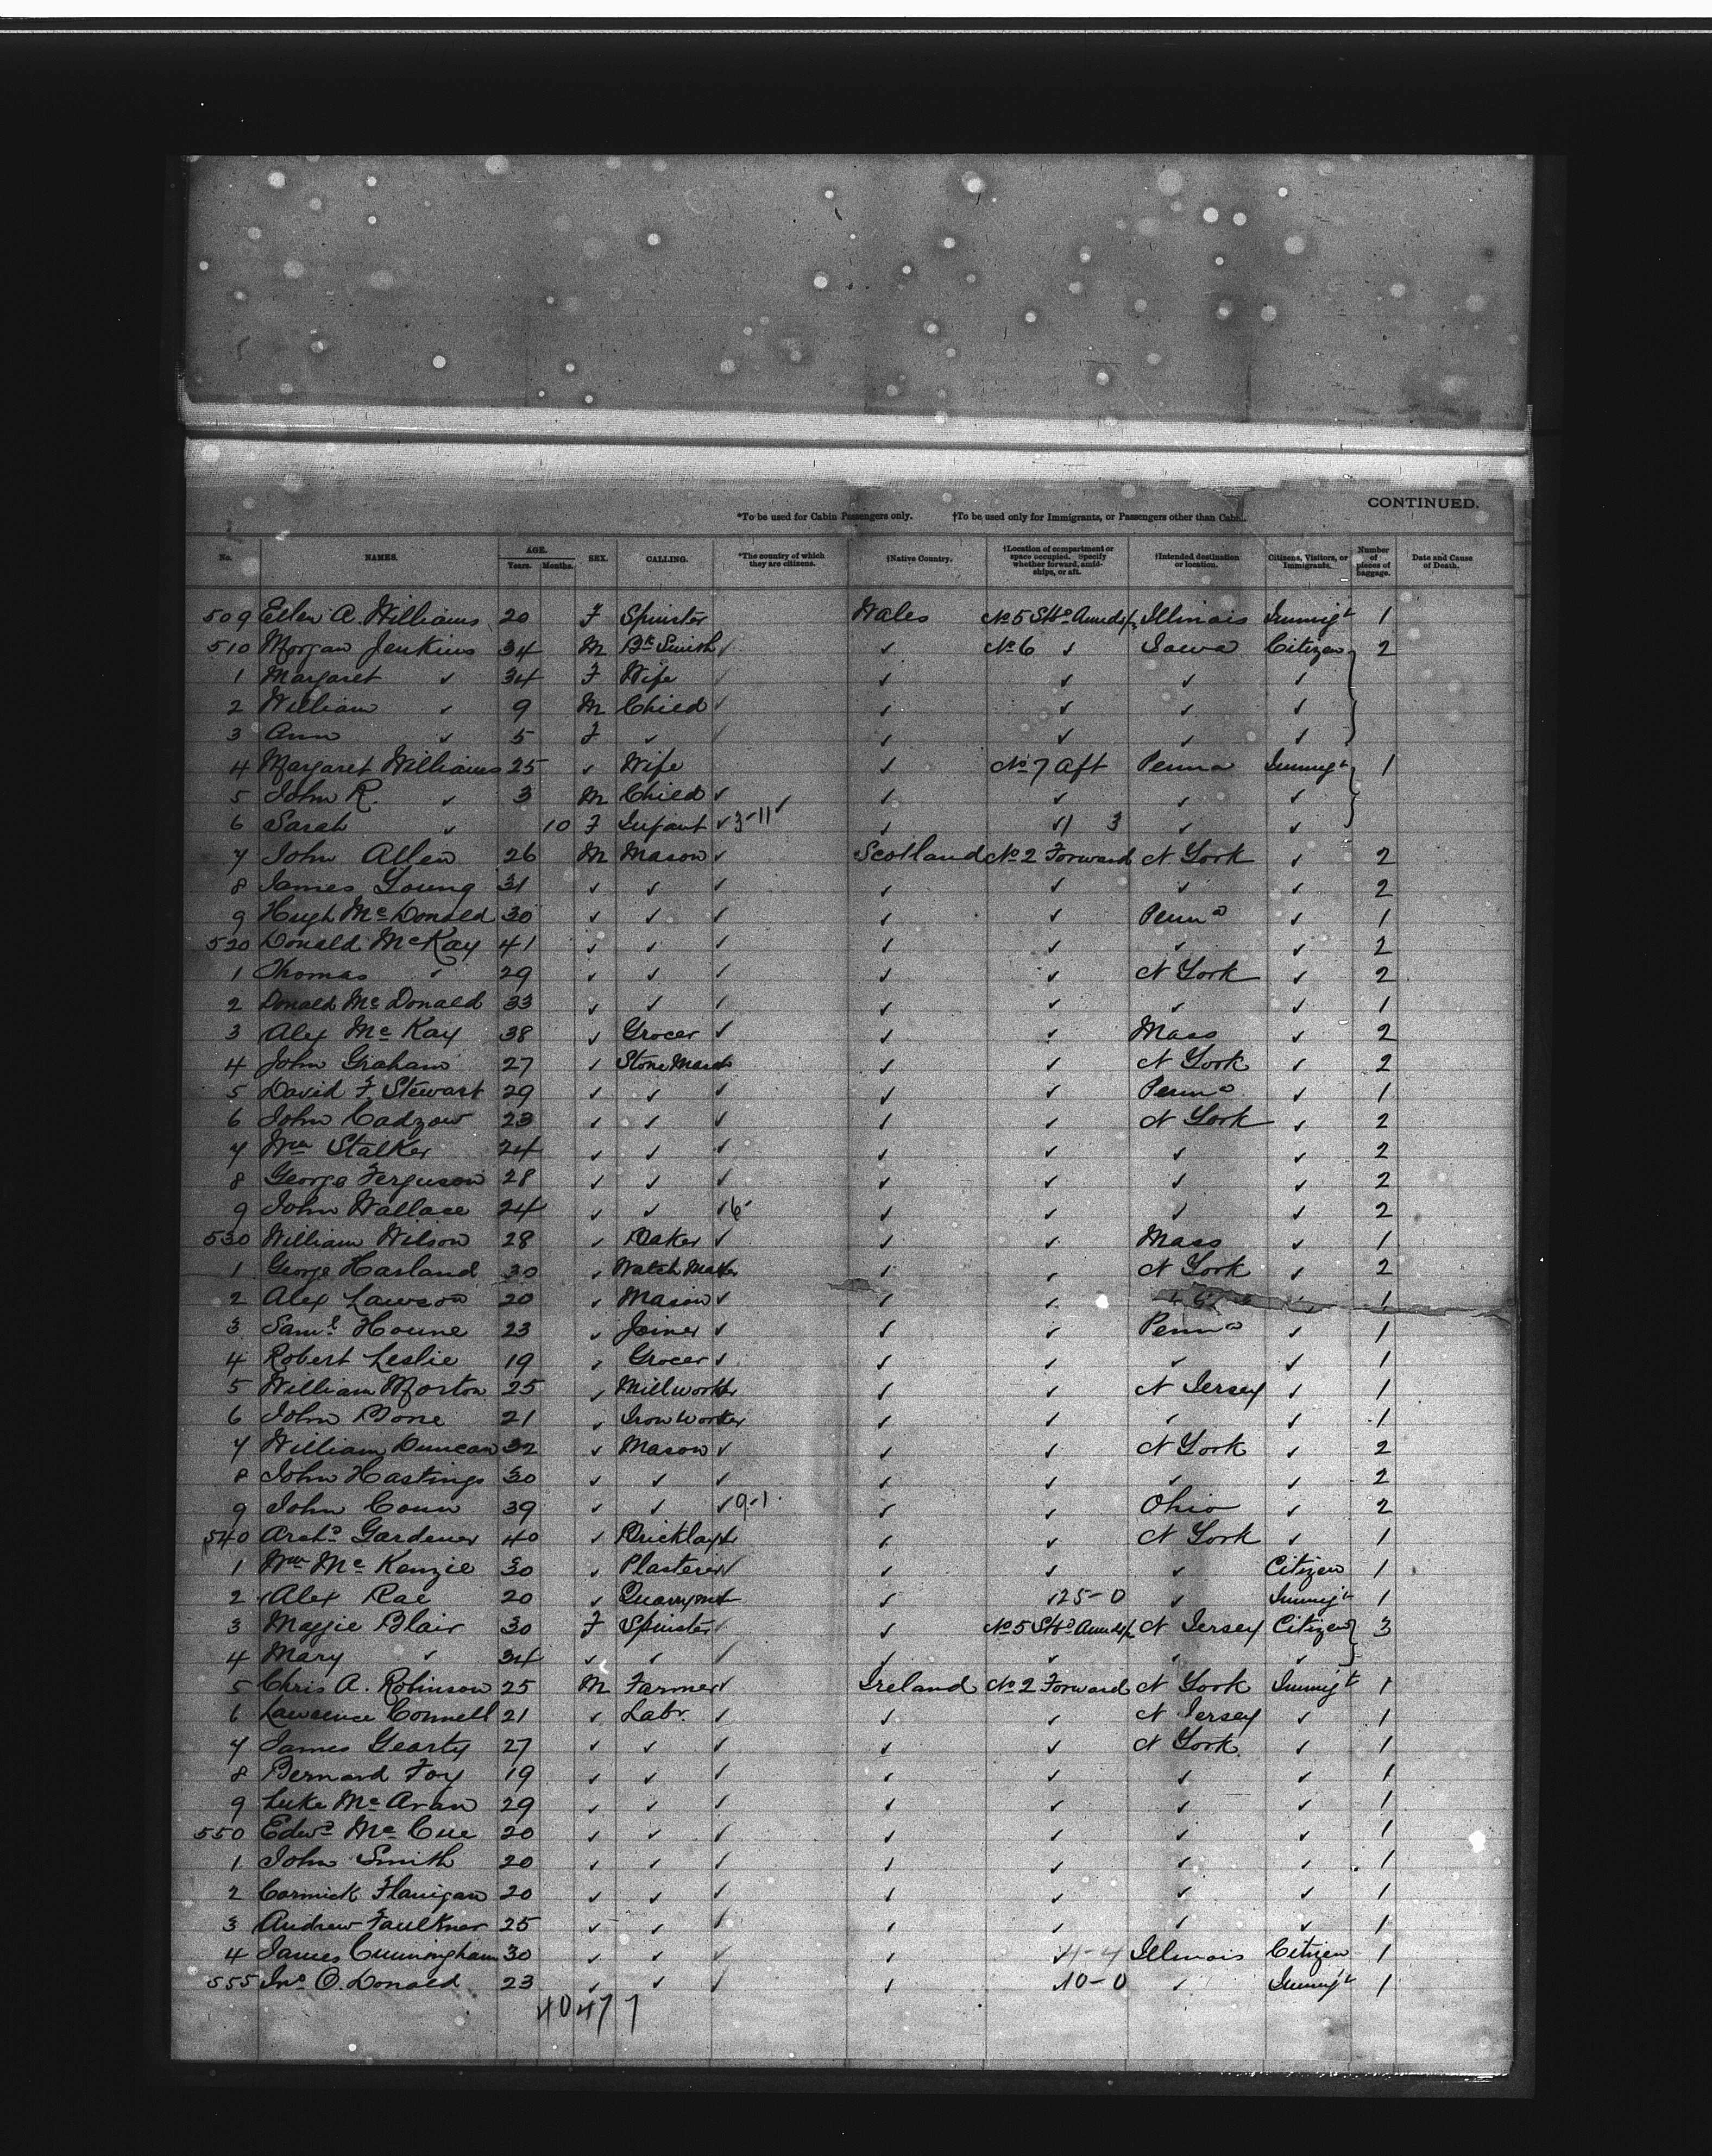 CONTINUED.
*To be used for Cabin Passengers only. †To be used only for Immigrants, or Passengers other than Cabin.
No. NAMES. AGE. Years. Months. SEX. CALLING. *The country of which they are citizens. †Native Country. †Location of compartment or space occupied. Specify whether forward, amidships, or aft. †Intended destination or location. Citizens, Visitors, or Immigrants. Number of pieces of baggage. Date and Cause of Death.
509 Ellen A. Williams 20 F Spinster Wales No 5 Illinois Immigt 1
510 Morgan Jenkins 34 M Bk Smith ✓ ✓ No 6 ✓ Iowa Citizen 2
1 Margaret ✓ 34 F Wife ✓ ✓ ✓ ✓ ✓
2 William ✓ 9 M Child ✓ ✓ ✓ ✓ ✓
3 Ann ✓ 5 F ✓ ✓ ✓ ✓ ✓ ✓
4 Margaret Williams 25 ✓ Wife ✓ No 7 Aft Penna Immigt 1
5 John R. ✓ 3 M Child ✓ ✓ ✓ ✓ ✓
6 Sarah ✓ 10 F Infant ✓ 3-11 ✓ ✓ 11 3 ✓ ✓
7 John Allen 26 M Mason ✓ Scotland No 2 Forward N York ✓ 2
8 James Young 31 ✓ ✓ ✓ ✓ ✓ ✓ ✓ 2
9 Hugh McDonald 30 ✓ ✓ ✓ ✓ ✓ Penna ✓ 1
520 Donald McKay 41 ✓ ✓ ✓ ✓ ✓ ✓ ✓ 2
1 Thomas ✓ 29 ✓ ✓ ✓ ✓ ✓ N York ✓ 2
2 Donald McDonald 33 ✓ ✓ ✓ ✓ ✓ ✓ ✓ 1
3 Alex McKay 38 ✓ Grocer ✓ ✓ ✓ Mass ✓ 2
4 John Graham 27 ✓ Stone Mason ✓ ✓ N York ✓ 2
5 David F. Stewart 29 ✓ ✓ ✓ ✓ ✓ Penna ✓ 1
6 John Cadzow 23 ✓ ✓ ✓ ✓ ✓ N York ✓ 2
7 Wm Stalker 24 ✓ ✓ ✓ ✓ ✓ ✓ ✓ 2
8 George Ferguson 28 ✓ ✓ ✓ ✓ ✓ ✓ ✓ 2
9 John Wallace 24 ✓ ✓ ✓ 6- ✓ ✓ ✓ ✓ 2
530 William Wilson 28 ✓ Baker ✓ ✓ ✓ Mass ✓ 1
1 George Harland 30 ✓ Watch Maker ✓ ✓ N York ✓ 2
2 Alex Lawson 20 ✓ Mason ✓ ✓ ✓ ✓ 1
3 Saml Houne 23 ✓ Joiner ✓ ✓ ✓ Penna ✓ 1
4 Robert Leslie 19 ✓ Grocer ✓ ✓ ✓ ✓ ✓ 1
5 William Morton 25 ✓ Millworker ✓ ✓ N Jersey ✓ 1
6 John Bone 21 ✓ Iron Worker ✓ ✓ ✓ ✓ 1
7 William Duncan 32 ✓ Mason ✓ ✓ ✓ N York ✓ 2
8 John Hastings 30 ✓ ✓ ✓ ✓ ✓ ✓ ✓ 2
9 John Coun 39 ✓ ✓ ✓ 9-1 ✓ ✓ Ohio ✓ 2
540 Archd Gardener 40 ✓ Bricklayer ✓ ✓ N York ✓ 1
1 Wm McKenzie 30 ✓ Plasterer ✓ ✓ ✓ ✓ Citizen 1
2 Alex Rae 20 ✓ Quarryman ✓ 25-0 ✓ Immigt 1
3 Maggie Blair 30 F Spinster ✓ ✓ No 5 N Jersey Citizen 3
4 Mary ✓ 34 ✓ ✓ ✓ ✓ ✓ ✓ ✓
5 Chris A. Robinson 25 M Farmer ✓ Ireland No 2 Forward N York Immigt 1
6 Lawrence Connell 21 ✓ Labr. ✓ ✓ ✓ N Jersey ✓ 1
7 James Gearty 27 ✓ ✓ ✓ ✓ ✓ N York ✓ 1
8 Bernard Foy 19 ✓ ✓ ✓ ✓ ✓ ✓ ✓ 1
9 Luke McAvan 29 ✓ ✓ ✓ ✓ ✓ ✓ ✓ 1
550 Edwd McCue 20 ✓ ✓ ✓ ✓ ✓ ✓ ✓ 1
1 John Smith 20 ✓ ✓ ✓ ✓ ✓ ✓ ✓ 1
2 Cormick Flanigan 20 ✓ ✓ ✓ ✓ ✓ ✓ ✓ 1
3 Andrew Faulkner 25 ✓ ✓ ✓ ✓ ✓ ✓ ✓ 1
4 James Cunningham 30 ✓ ✓ ✓ ✓ 4-4 Illinois Citizen 1
555 Jno O. Donald 23 ✓ ✓ ✓ ✓ 10-0 ✓ Immigt 1
40477